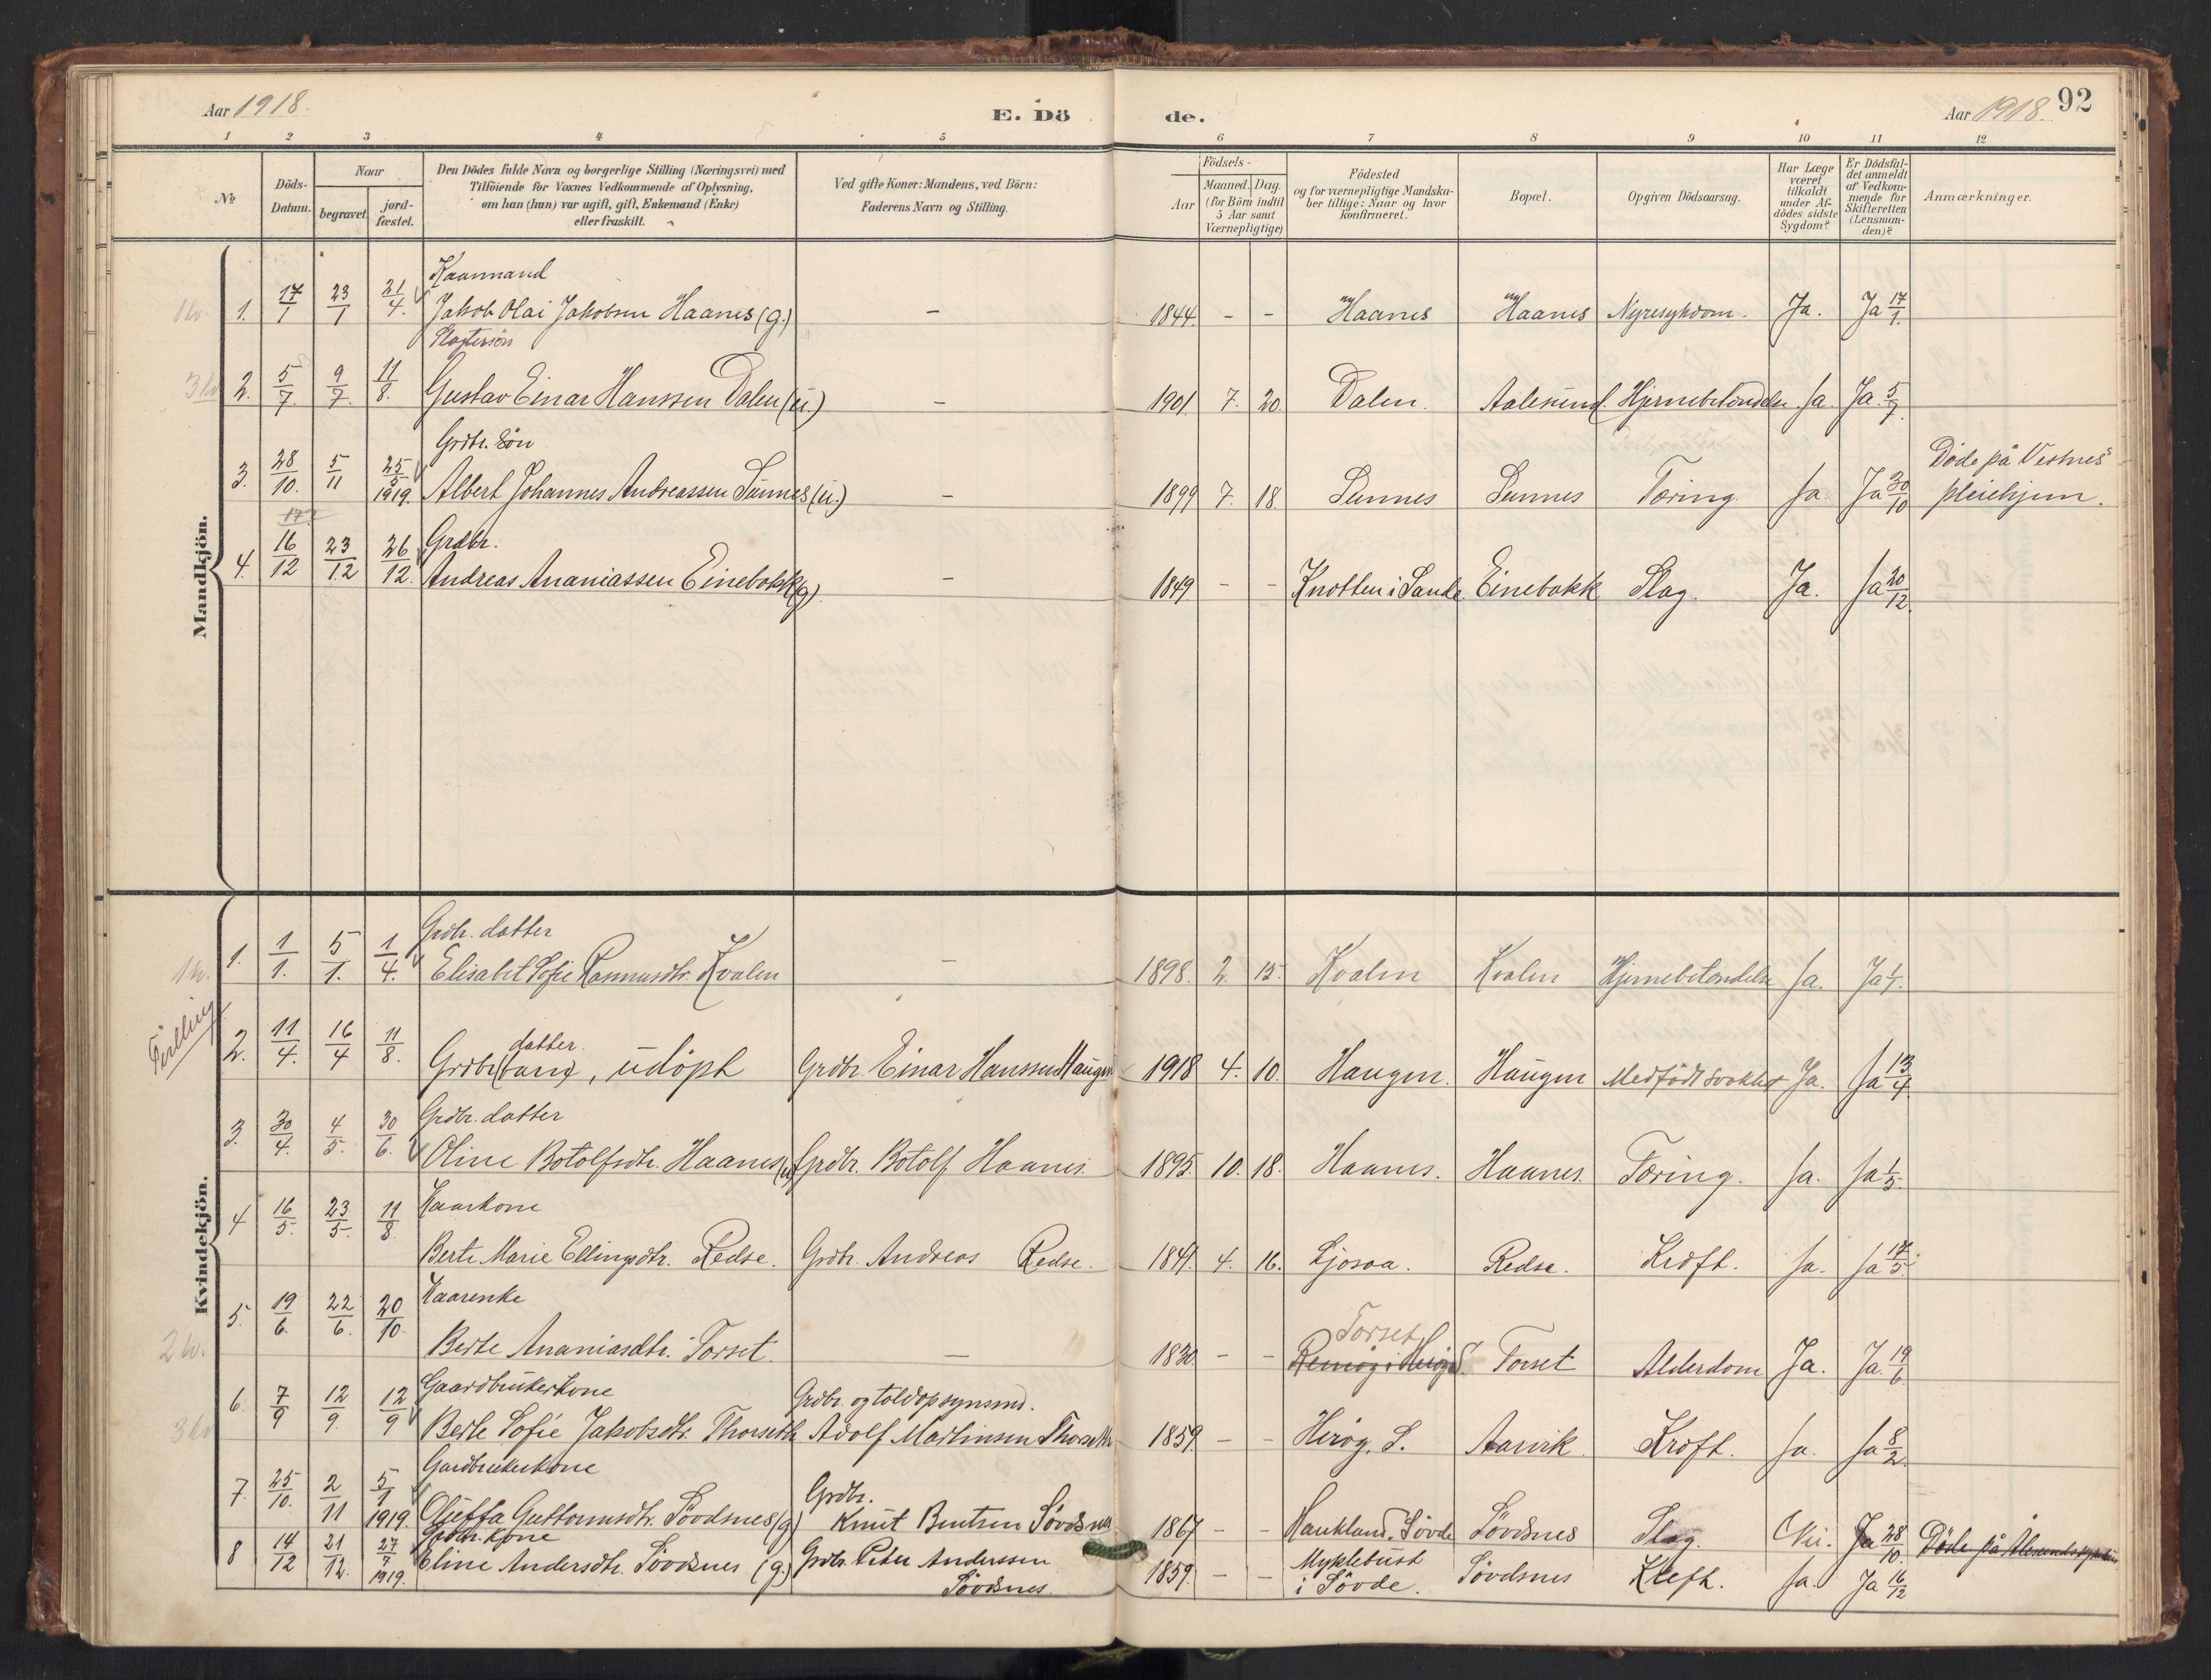 Aar 1918.
E. Dö
de.
Aar 1918.
92
1 2 3 4 5 6 7 8 9 10 11 12
№
Döds-
Datum.
Naar
begravet.
jord-
fæstet.
Den Dödes fulde Navn og borgerlige Stilling (Næringsvei) med
Tilföiende for Voxnes Vedkommende af Oplysning,
om han (hun) var ugift, gift, Enkemand (Enke)
eller fraskilt.
Ved gifte Koner: Mandens, ved Börn:
Faderens Navn og Stilling.
Födsels-
Aar
Maaned. Dag.
(for Börn indtil
5 Aar samt
Værnepligtige)
Födested
og for værnepligtige Mandska-
ber tillige: Naar og hvor
Konfirmeret.
Bopæl.
Opgiven Dödsaarsag.
Har Læge
været
tilkaldt
under Af-
dödes sidste
Sygdom?
Er Dödsfal-
det anmeldt
af Vedkom-
mende for
Skifteretten
(Lensman-
den)?
Anmærkninger.
Mandkjön.
Kaarmand
1. 17/1 23/1 21/4. Jakob Olai Jakobsen Haanes (g.) – 1844. – – Haanes Haanes Nyresykdom. Ja. Ja 17/1.
2. 5/7. 9/7. 11/8. Gustav Einar Hanssen Dalen (u.) – 1901. 7. 20. Dalen. Aalesund. Hjernebetændelse Ja. Ja 5/7.
Grdbr. Sön
3. 28/10. 5/11 25/5 1919. Albert Johannes Andreassen Sunnes (u.) – 1899 7. 18. Sunnes Sunnes Tæring Ja. Ja 30/10 Döde på Vestnes
pleiehjem.
Grdbr.
4. 16/12 23/12 26/12. Andreas Ananiassen Einebakk (g) – 1849 – – Knotten i Sande Einebakk Slag. Ja. Ja 20/12.
Kvindekjön.
Grdbr. datter
1. 1/1. 5/1. 1/4. Elisabet Sofie Rasmusdtr. Kvalen – 1898. 2. 15. Kvalen Kvalen Hjernebetændelse Ja. Ja 1/1.
Tvilling
datter
2. 11/4. 16/4 11/8. Grdbr. (barn), udöpt Grdbr. Einar Hanssen Haugen 1918 4. 10. Haugen. Haugen Medfödt svakhet Ja. Ja 13/4.
Grdbr. datter
3. 30/4. 4/5. 30/6. Oline Botolfsdtr. Haanes (u) Grdbr. Botolf Haanes. 1895. 10. 18. Haanes. Haanes. Tæring. Ja. Ja 1/5.
Kaarkone
4 16/5. 23/5. 11/8 Berte Marie Ellingsdtr. Redse. Grdbr. Andreas Redse. 1841. 4. 16. Ljosaa. Redse. Kræft. Ja. Ja 17/5.
Kaarenke
Torset
5. 19/6. 22/6. 20/10. Berte Ananiasdtr. Torset. – 1830. – – Torset Alderdom Ja. Ja. 19/6.
Gaardbrukerkone
Grdbr. og toldopsynsmd.
6. 7/9 12/9. 12/9 Berte Sofie Jakobsdtr. Thorseth Adolf Martinsen Thorseth 1859. – – Heröy. S. Aarvik Kræft. Ja. Ja 8/2.
Gardbrukerkone
Grdbr.
7. 25/10. 2/11 5/1 1919. Oluffa Guttormsdtr. Sövdsnes (g) Knut Bentsen Sövdsnes 1867 – – Haukland, Sövde Sövdsnes Slag. Nei. Ja 28/10. Döde på Aalesunds sykehus
Grdbr. kone
8 14/12 21/12. 27/7 1919. Eline Andersdtr. Sövdsnes (g.) Grdbr. Peter Anderssen
Sövdsnes. 1859. – – Myklebust
i Sövde. Sövdsnes Kreft. Ja. Ja 16/12